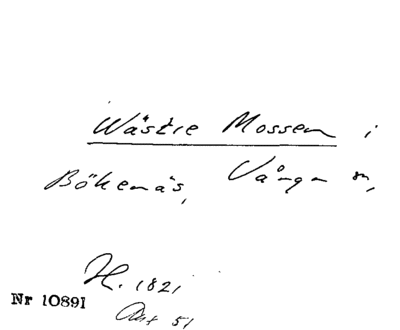 Wästre Mossen i
Bökenäs, Vånga sn,
H. 1821
Nr 10891
Akt 51